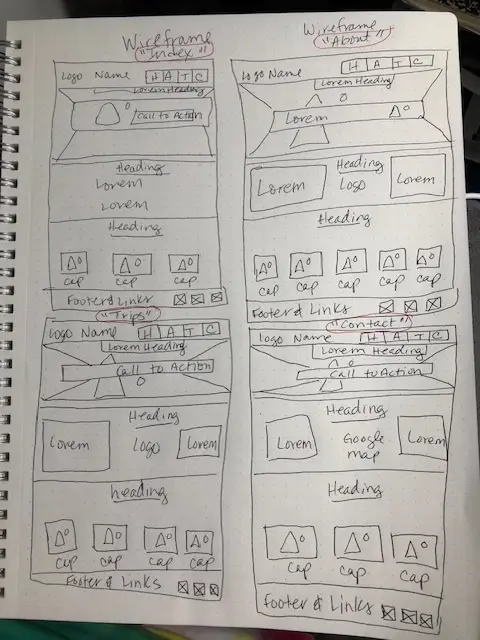 Wireframe
"Index"
Logo Name H A T C
Lorem Heading
Call to Action
Heading
Lorem
Lorem
Heading
cap cap cap
Footer & Links
Wireframe
"About"
Logo Name H A T C
Lorem Heading
Lorem
Heading
Lorem Logo Lorem
Heading
cap cap cap cap cap
Footer & Links
"Trips"
Logo Name H A T C
Lorem Heading
Call to Action
Heading
Lorem Logo Lorem
heading
cap cap cap cap
Footer & Links
"Contact"
Logo Name H A T C
Lorem Heading
Call to Action
Heading
Lorem Google Lorem
map
Heading
cap cap cap
Footer & Links